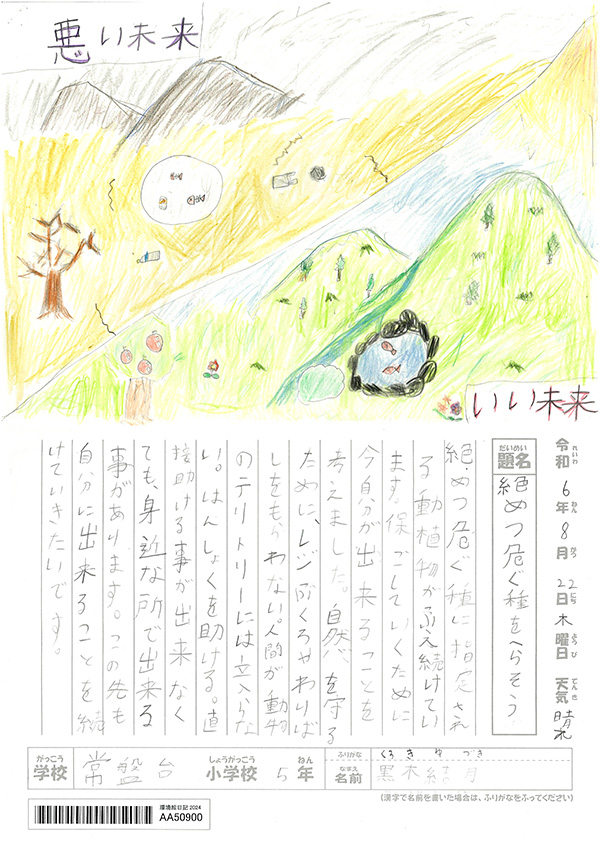 悪い未来
いい未来
令和 6年 8月 22日 木曜日 天気 晴れ
れいわ ねん がつ にち ようび てんき
だいめい
題名
絶めつ危ぐ種をへらそう
絶めつ危ぐ種に指定され
る動植物がふえ続けてい
ます。保ごしていくために
今自分が出来ることを
考えました。自然を守る
ために、レジぶくろやわりば
しをもらわない。人間が動物
のテリトリーには立入らな
い。はんしょくを助ける。直
接助ける事が出来なく
ても、身近な所で出来る
事があります。この先も
自分に出来ることを続
けていきたいです。
がっこう しょうがっこう ねん ふりがな くろき ゆづき
学校 常盤台 小学校 5年 なまえ 名前 黒木結月
(漢字で名前を書いた場合は、ふりがなをふってください)
環境絵日記 2024
AA50900